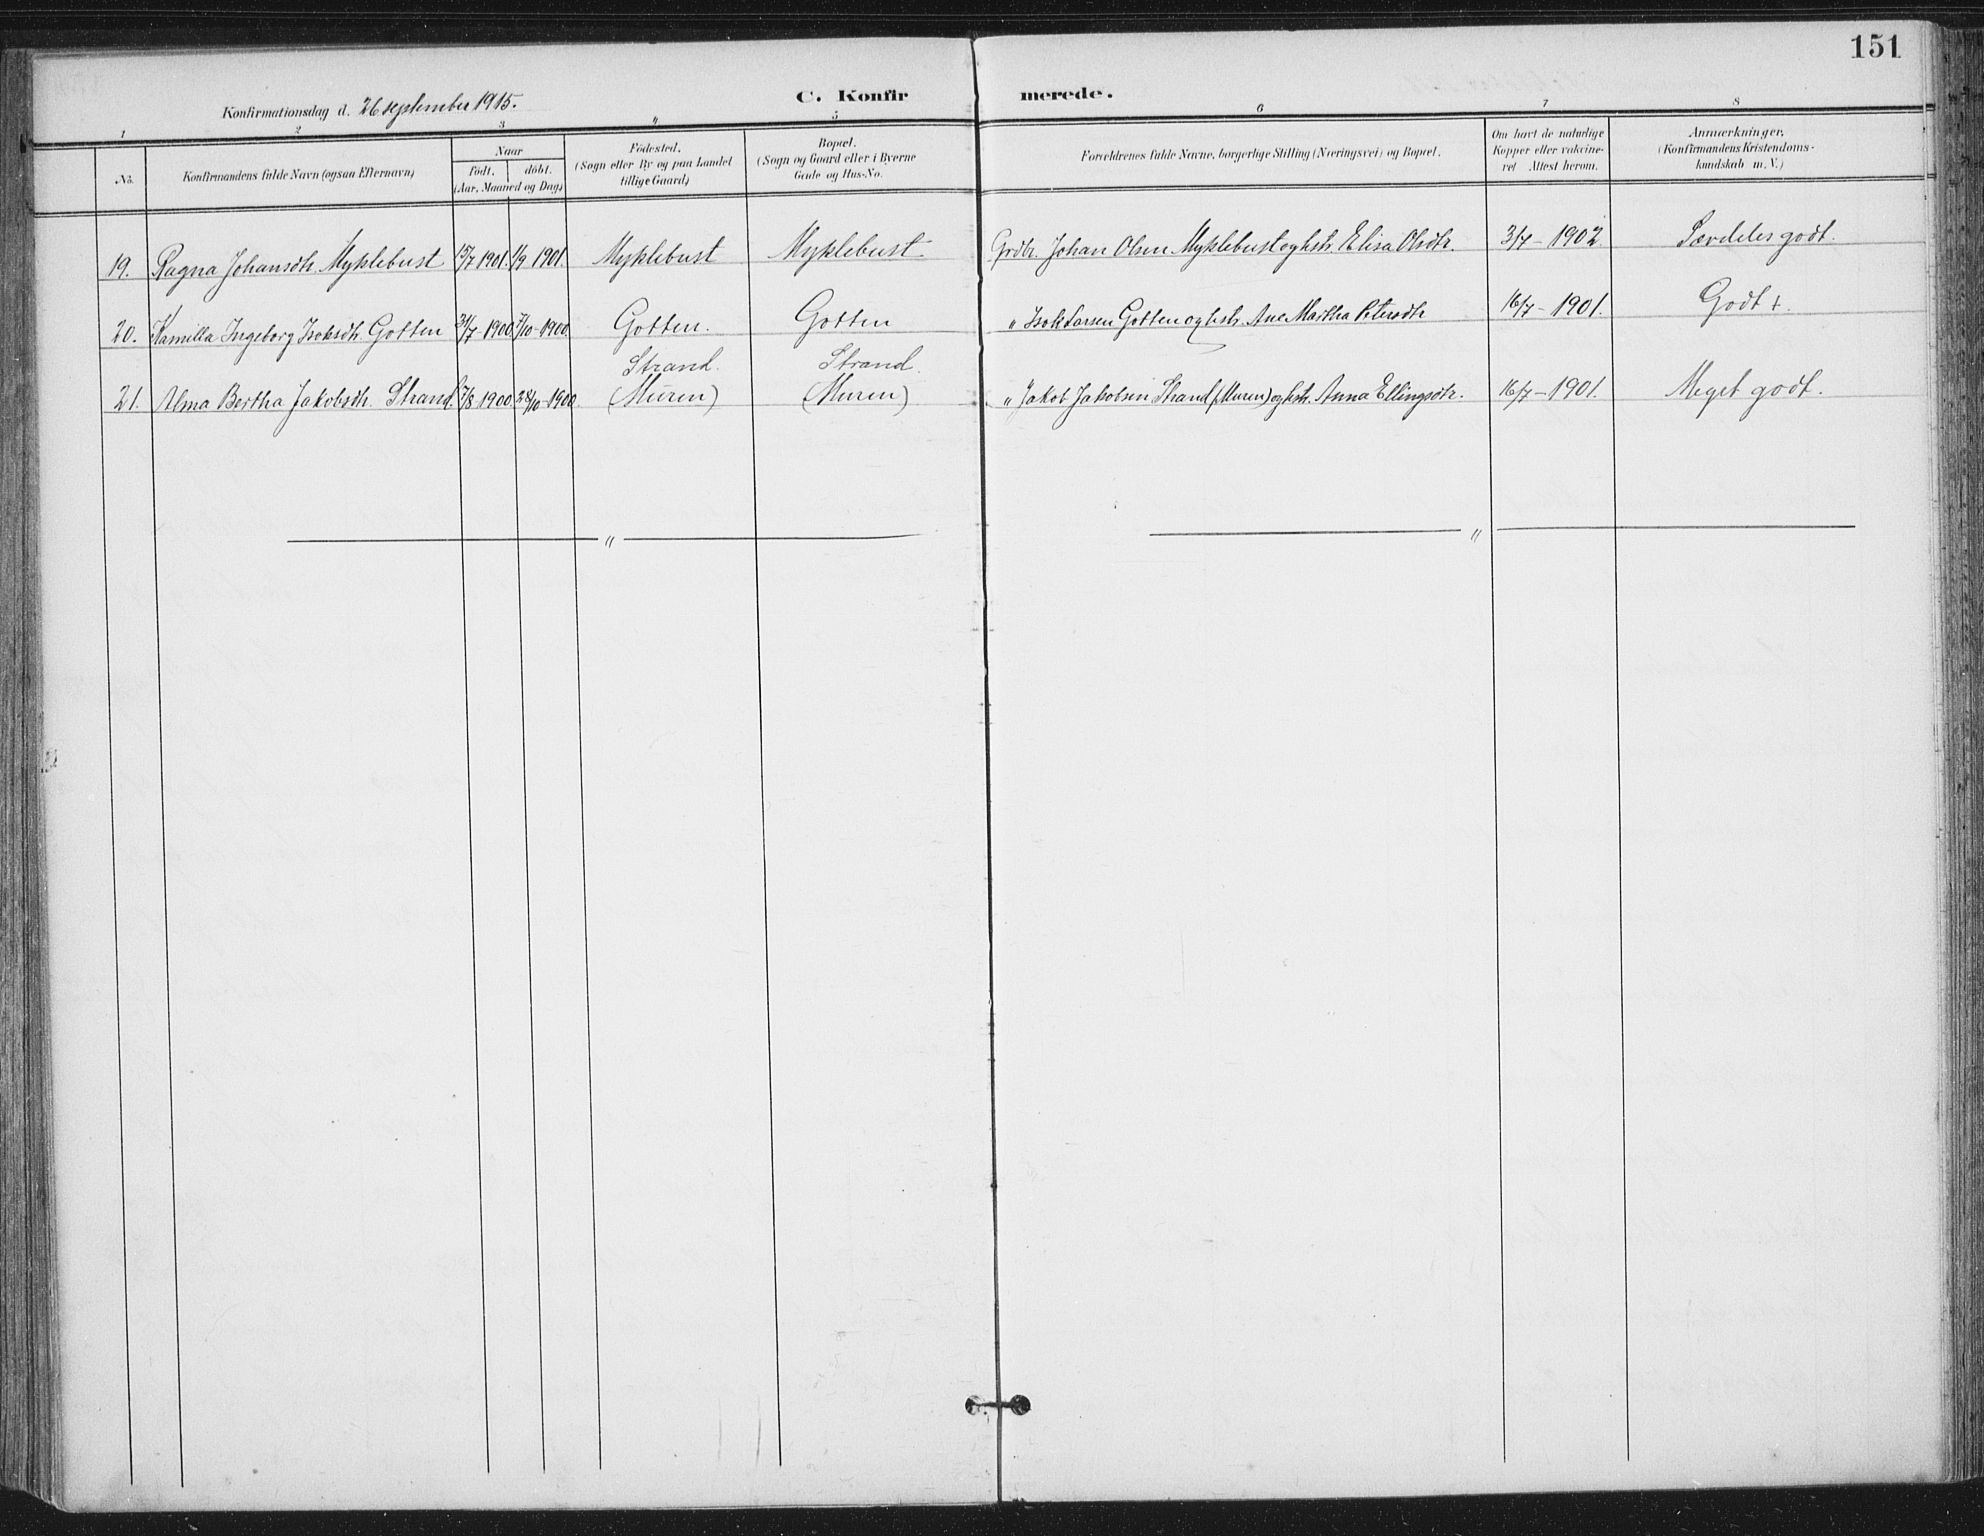 151
Konfirmationsdag d. 26 september 1915.
C. Konfirmerede.
1 2 3 4 5 6 7 8
No.
Konfirmandens fulde Navn (ogsaa Efternavn)
Naar
födt. döbt.
(Aar, Maaned og Dag)
Födested.
(Sogn eller By og paa Landet
tillige Gaard)
Bopæl.
(Sogn og Gaard eller i Byerne
Gade og Hus-No.
Forældrenes fulde Navne, borgerlige Stilling (Næringsvei) og Bopæl.
Om havt de naturlige
Kopper eller vakcine-
ret Attest herom.
Anmærkninger.
(Konfirmandens Kristendoms-
kundskab m. V.)
19. Ragna Johansdtr Myklebust 15/7 1901. 1/9 1901. Myklebust Myklebust Grdbr. Johan Olsen Myklebust og hstr. Elisa Olsdtr. 3/7 - 1902 Særdeles godt.
20. Kamilla Ingeborg Isaksdtr. Gotten 31/7 - 1900 7/10 - 1900. Gotten. Gotten " Isak Larsen Gotten og hstr. Ane Martha Petersdtr 16/7 - 1901. Godt +
21. Alma Bertha Jakobsdtr. Strand 7/8 1900. 28/10 - 1900. Strand. (Muren) Strand. (Muren) " Jakob Jakobsen Strand (Muren) og hstr. Anna Ellingsdtr. 16/7 - 1901. Meget godt.
" "